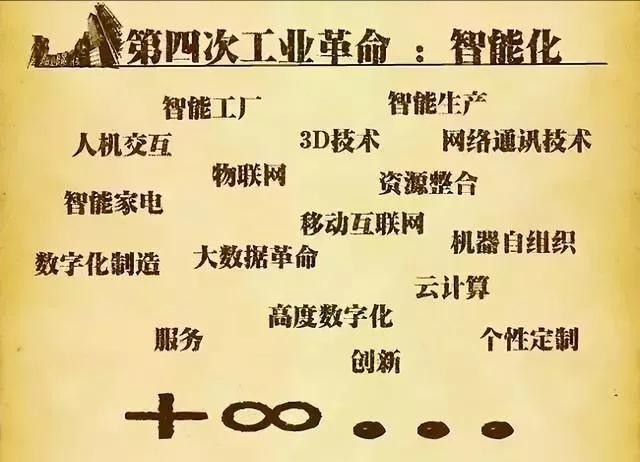 第四次工业革命 ：智能化
智能工厂
智能生产
人机交互
3D技术
网络通讯技术
物联网
资源整合
智能家电
移动互联网
机器自组织
数字化制造
大数据革命
云计算
高度数字化
服务
个性定制
创新
+∞...